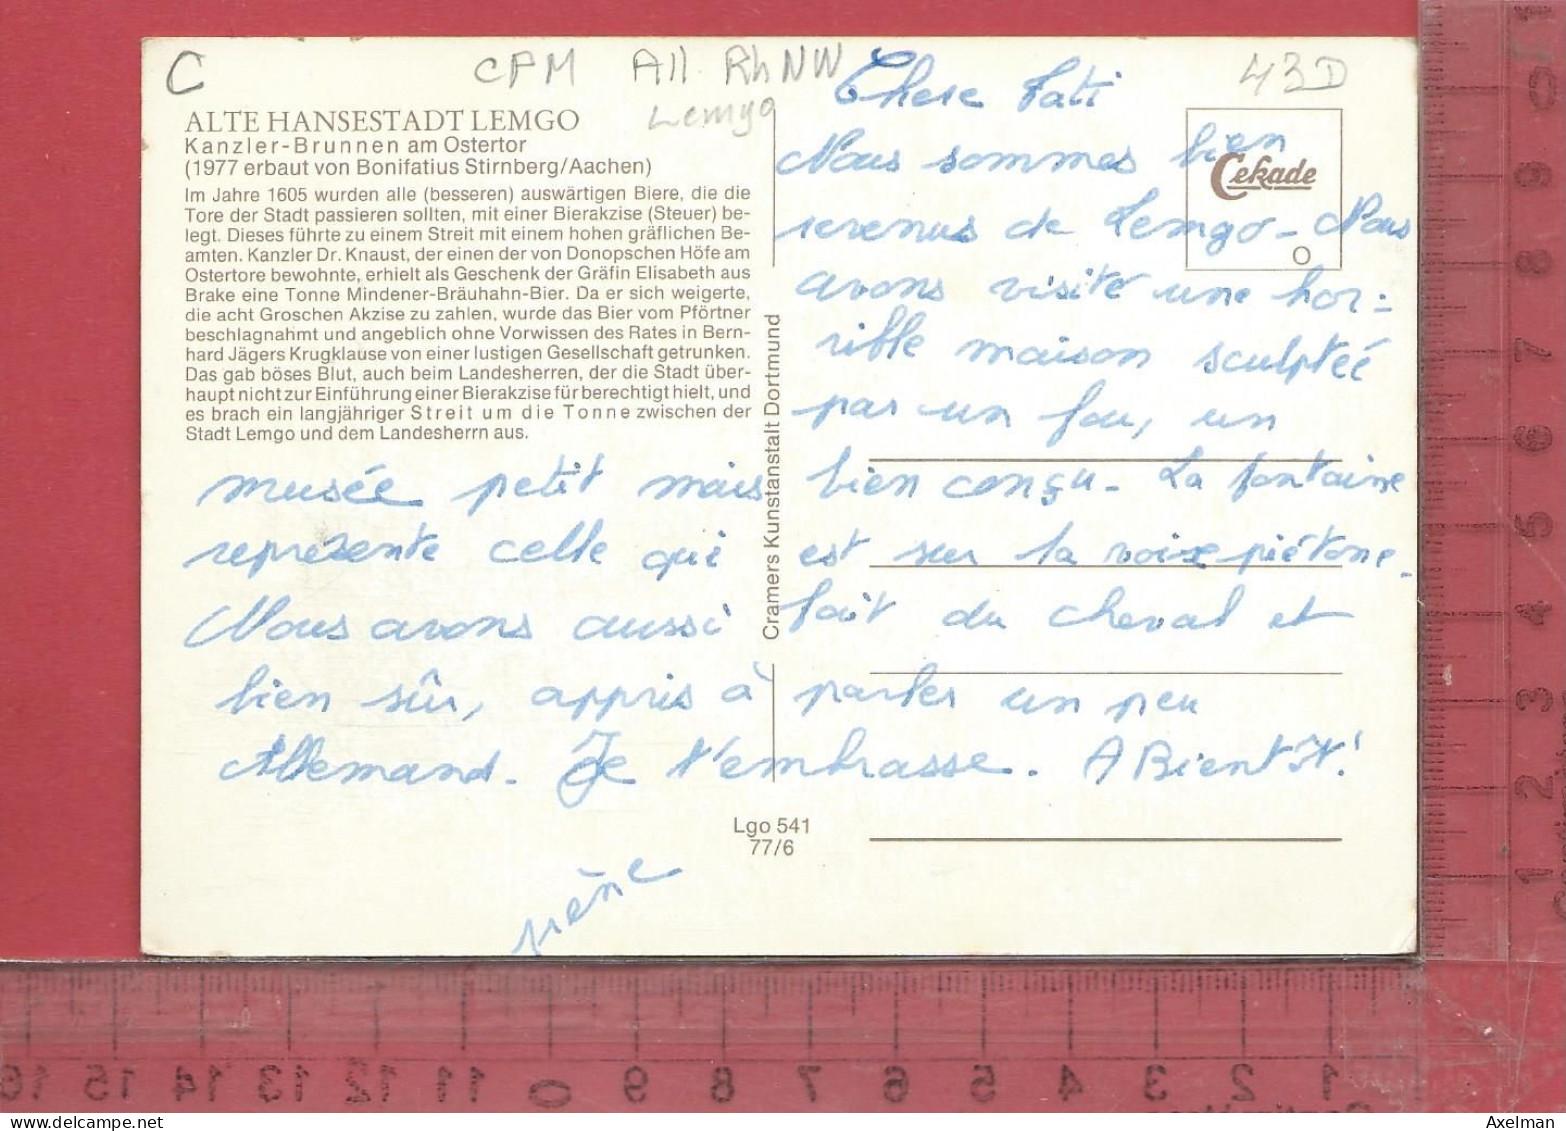 C
CPM All RhNW
Lemgo
43D
ALTE HANSESTADT LEMGO
Kanzler-Brunnen am Ostertor
(1977 erbaut von Bonifatius Stirnberg/Aachen)
Im Jahre 1605 wurden alle (besseren) auswärtigen Biere, die die
Tore der Stadt passieren sollten, mit einer Bierakzise (Steuer) be-
legt. Dieses führte zu einem Streit mit einem hohen gräflichen Be-
amten. Kanzler Dr. Knaust, der einen der von Donopschen Höfe am
Ostertore bewohnte, erhielt als Geschenk der Gräfin Elisabeth aus
Brake eine Tonne Mindener-Bräuhahn-Bier. Da er sich weigerte,
die acht Groschen Akzise zu zahlen, wurde das Bier vom Pförtner
beschlagnahmt und angeblich ohne Vorwissen des Rates in Bern-
hard Jägers Krugklause von einer lustigen Gesellschaft getrunken.
Das gab böses Blut, auch beim Landesherren, der die Stadt über-
haupt nicht zur Einführung einer Bierakzise für berechtigt hielt, und
es brach ein langjähriger Streit um die Tonne zwischen der
Stadt Lemgo und dem Landesherrn aus.
Cramers Kunstanstalt Dortmund
Cekade
Chere Fati
Nous sommes bien
revenus de Lemgo - Nous
avons visité une hor-
rible maison sculpteé
par un fou, un
musée petit mais bien conçu - La fontaine
représente celle qui est sur la voixe piétone.
Nous avons aussi fait du cheval et
bien sûr, appris à parler un peu
Allemand. Je t'embrasse. A Bientôt!
Lgo 541
77/6
16 15 14 13 12 11 0 9 8 7 6 5 4 3 2 1
9
8
7
6
5
4
3
2
1
Axelman